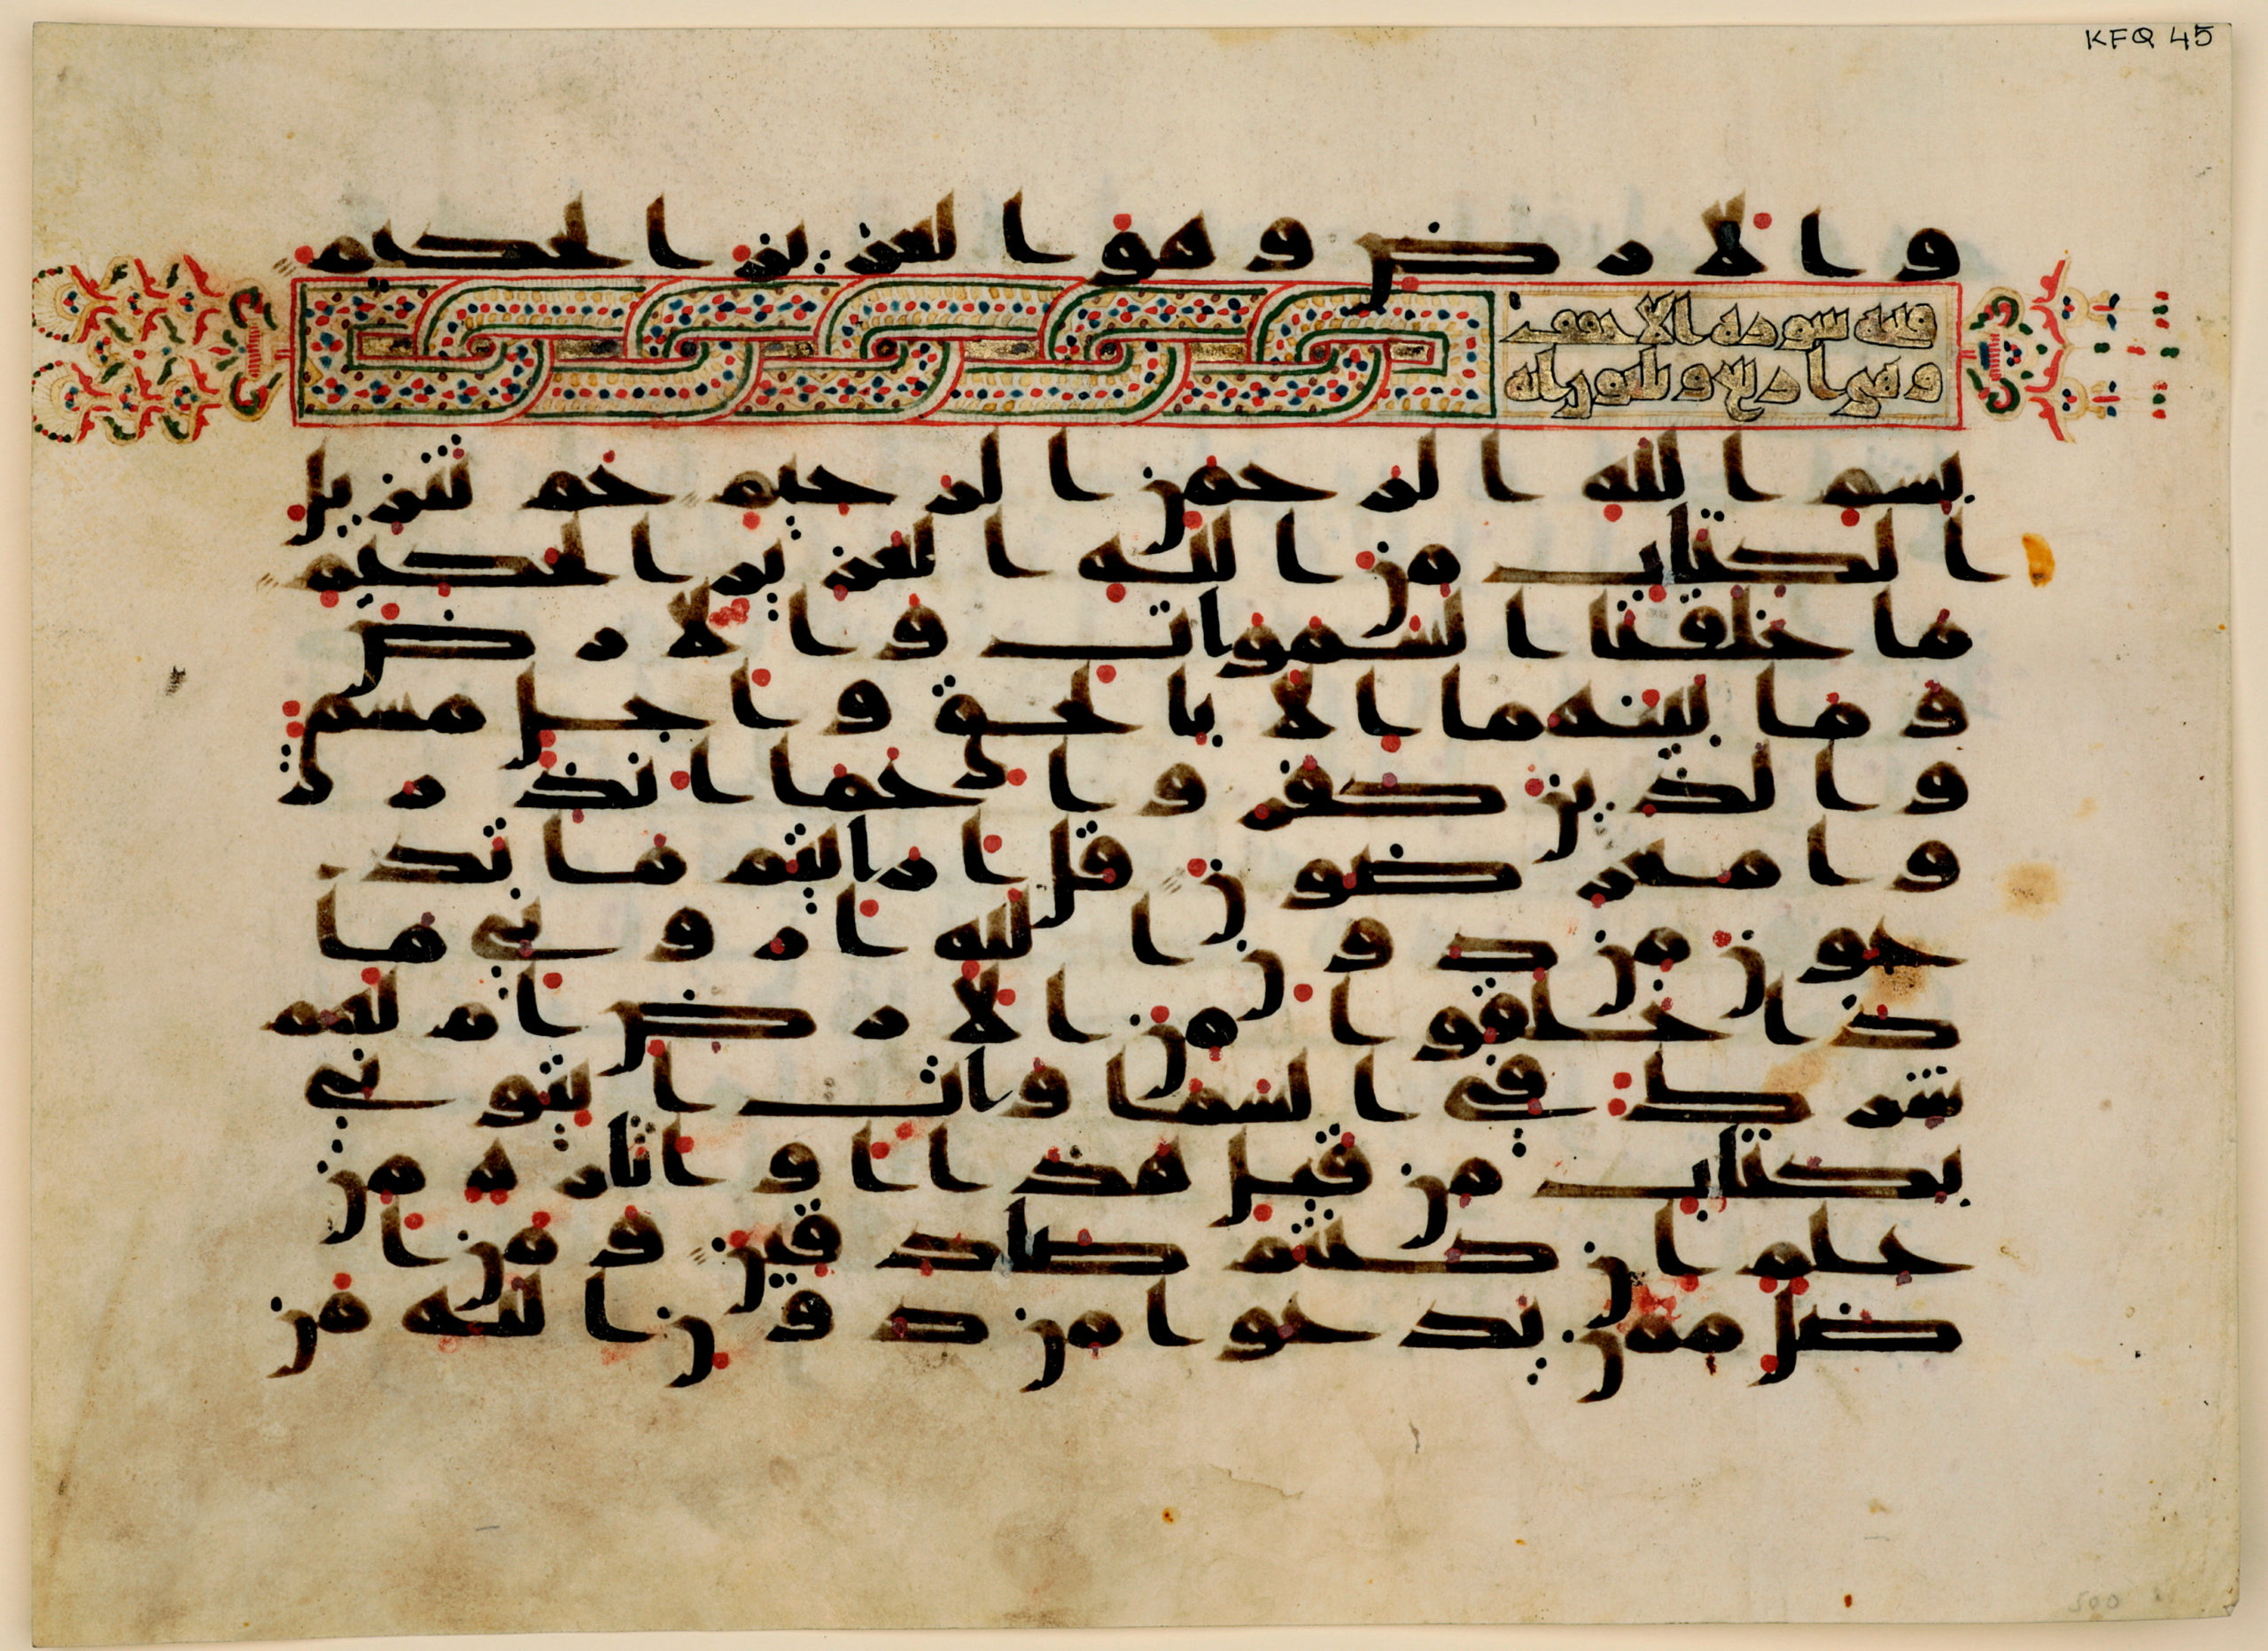 KFQ 45
والارض وهو العزيز الحكيم
سورة الاحقف
وهي اربع وثلثون اية
بسم الله الرحمن الرحيم حم تنزيل
الكتاب من الله العزيز الحكيم
ما خلقنا السموات والارض
وما بينهما الا بالحق واجل مسمى
والذين كفروا عما انذر
وا معرضون قل ارايتم ما تد
عون من دون الله اروني ما
ذا خلقوا من الارض ام لهم
شرك في السماوات ايتوني
بكتاب من قبل هذا او اثارة من
علم ان كنتم صادقين ومن ا
ضل ممن يدعوا من دون الله من